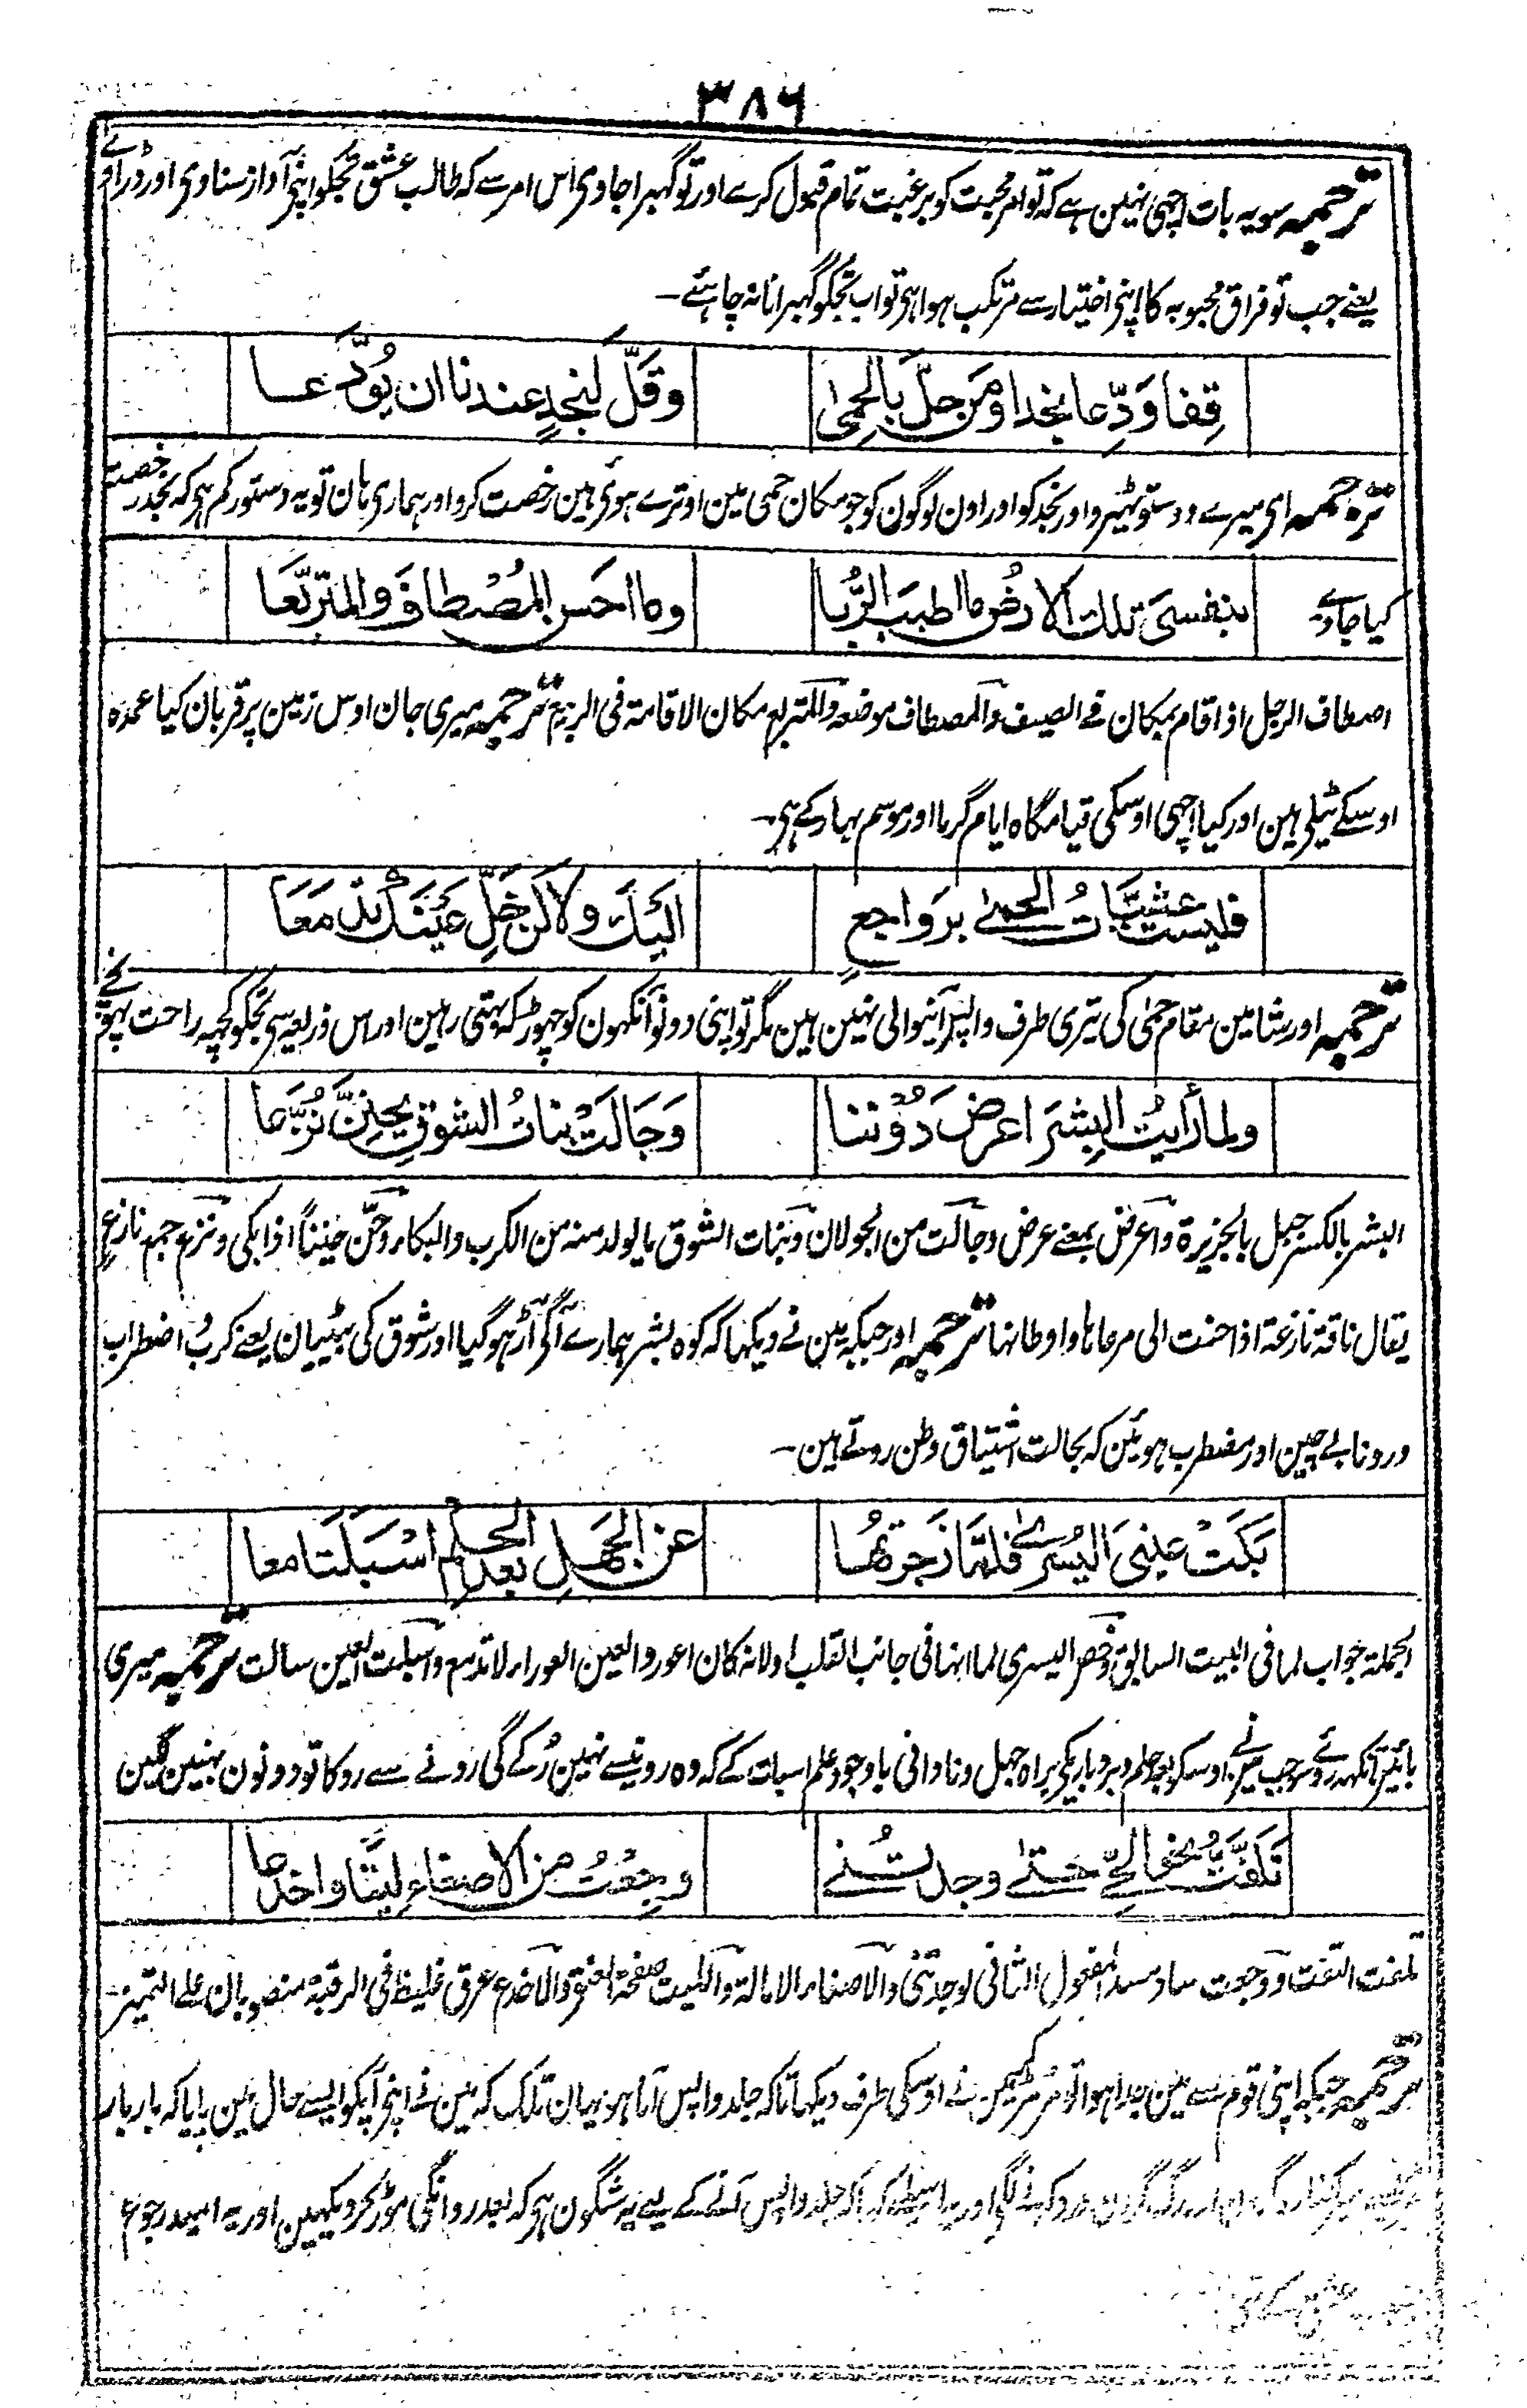 ٣٨٦
ترجمہ سو یہ بات اچھی نہین ہے کہ تو امر محبت کو برغبت تمام قبول کرے اور تو گہبرا جاوی اس امر سے کہ طالب عشق تجکو اپنی آواز سناوی اور ڈراوے
یعنے جب تو فراق محبوبہ کا اپنی اختیار سے مرتکب ہوا ہی تو اب تجکو گہبرانا نہ چاہئے –
قِفا وَدِّعا نجدا ومَن حلَّ بالحِمیٰ وقَلَّ لِنجدٍ عندنا ان یُودَّعا
ترجمہ ای میرے دوستو ٹہیرو اور نجد کو اور اون لوگون کو جو مکان حمی مین اوترے ہوئی ہین رخصت کرو اور ہماری ہان تو یہ دستور کم ہی کہ نجد رخصت
کیا جاوے بنفسی تلك الارضُ ما اطیبَ الرُّبا وما احسن المُصْطافَ والمتربّعَا
اصطاف الرجل اذا اقام بمکان فی الصیف والمصطاف موضعہ والمتربع مکان الاقامۃ فی الربیع ترجمہ میری جان اوس زمین پر قربان کیا عمدہ
اوسکے ٹیلی ہین اور کیا اچہی اوسکی قیامگاہ ایام گرما اور موسم بہار کے ہی –
فلیست عشیّاتُ الحمیٰ برَواجعٍ الیَكَ ولاکن خَلِّ عَیْنَیكَ تدمَعَا
ترجمہ اور شامین مقام حمٰی کی تیری طرف واپس آنیوالی نہین ہین مگر تو اپنی دونو آنکہون کو چہوڑ کہ بہتی رہین اور اس ذریعہ سی تجکو کچہہ راحت پہونچے
ولما رأیتُ البِشرَ اعرض دُوننا وَجَالَتْ بناتُ الشوقِ یحنِنَّ نُزَّعا
البشر بالکسر جبل بالجزیرۃ واعرض بمعنے عرض وجالت من الجولان وبنات الشوق ما یولد منہ من الکرب والبکاء وحنّ حنیناً اذا بکی ونزع جمع نازع
یقال ناقۃ نازعۃ اذا حنت الی مرعاہا واوطانہا ترجمہ اور جبکہ مین نے دیکہا کہ کوہ بشر ہمارے آگی آڑ ہو گیا اور شوق کی بیٹیان یعنے کرب اضطراب
ورونا بے چین اور مضطرب ہوئین کہ بحالت اشتیاق وطن روتے ہین –
بَکَتْ عینیَ الیُسریٰ فلمّا زجرتُها عن الجهلِ بعد الحلمِ اسْبَلَتا معا
الجملۃ جواب لما فی البیت السابق وخص الیسری لما انہا فی جانب القلب اولانہ کان اعور والعین العوراء لا تدمع واسبلت العین سالت ترجمہ میری
بائین آنکہہ روئی سو جب مین نے اوسکو بعد حلم وبردباری کی براہ جہل ونادانی باوجود علم اسبات کے کہ وہ رونیسے نہین رُکے گی رونے سے روکا تو دونون بہنین لگین
تَلَفَّتُّ نحو الحیّ حتیٰ وجدتُنی وجِعْتُ من الاصغاءِ لِیتًا واخدعا
تلفت التفت ووجعت ساد مسد المفعول الثانی لوجدتنی والاصغاء الامالۃ واللیت صفحۃ العنق والاخدع عرق غلیظ فی الرقبۃ منصوبان علی التمییز –
ترجمہ جبکہ اپنی قوم سے مین جدا ہوا تو مُڑ مُڑ کر مین نے اوسکی طرف دیکہا تاکہ جلد واپس آنا ہو یہان تلک کہ مین نے اپنی آپکو ایسے حال مین پایا کہ بار بار
اور یہ اسیواسطے کہ جلد واپس آنے کے لیے یہ شگون ہی کہ بعد روانگی موڑ کر دیکہین اور یہ امید رجوع